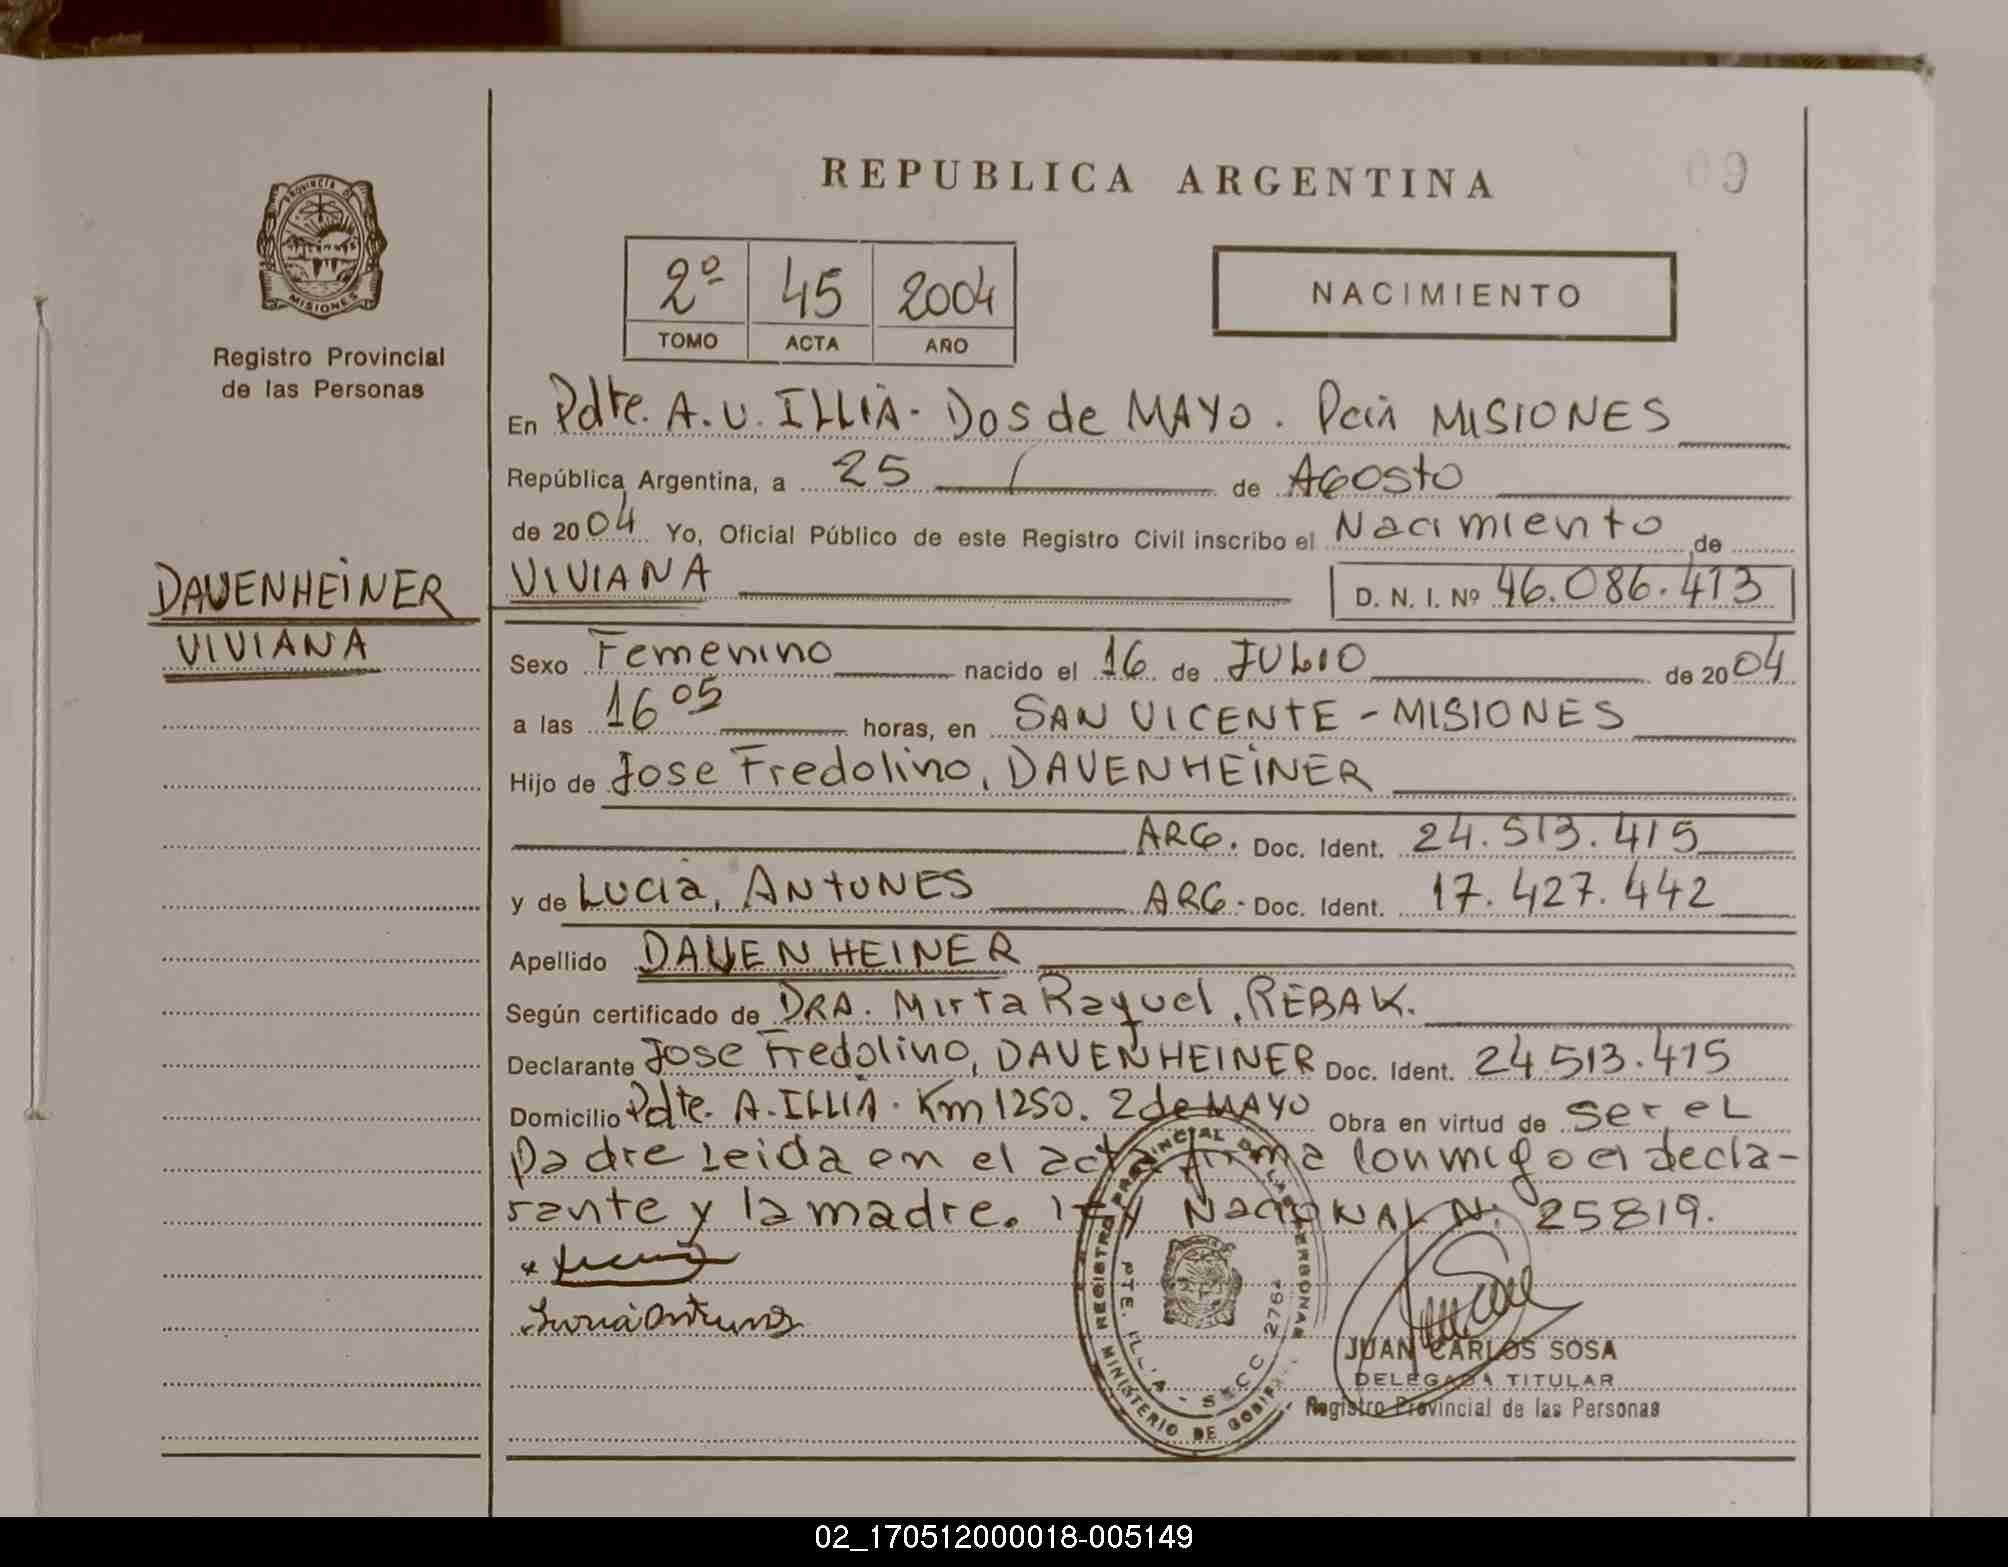 REPUBLICA ARGENTINA
09
PROVINCIA DE MISIONES
Registro Provincial
de las Personas
2º 45 2004
TOMO ACTA AÑO
NACIMIENTO
En Pdte. A. U. ILLIA - Dos de MAYO. Pcia MISIONES
República Argentina, a 25 de AGOSTO
de 2004 Yo, Oficial Público de este Registro Civil inscribo el Nacimiento de
DAVENHEINER
VIVIANA
VIVIANA D. N. I. Nº 46.086.413
Sexo Femenino nacido el 16 de JULIO de 2004
a las 16 05 horas, en SAN VICENTE - MISIONES
Hijo de Jose Fredolino, DAVENHEINER
ARG. Doc. Ident. 24.513.415
y de Lucia, ANTUNES ARG. Doc. Ident. 17.427.442
Apellido DAVENHEINER
Según certificado de DRA. Mirta Raquel, REBAK.
Declarante Jose Fredolino, DAVENHEINER Doc. Ident. 24.513.415
Domicilio Pdte. A. ILLIA. Km 1250. 2 de MAYO Obra en virtud de ser el
padre Leida em el acta firma conmigo el decla-
rante y la madre. Ley NacioNAL N. 25819.
Lucia Antunes
REGISTRO PROVINCIAL DE LAS PERSONAS
MINISTERIO DE GOBIERNO
PTE. ILLIA - SECC 2762
JUAN CARLOS SOSA
DELEGADA TITULAR
Registro Provincial de las Personas
02_170512000018-005149